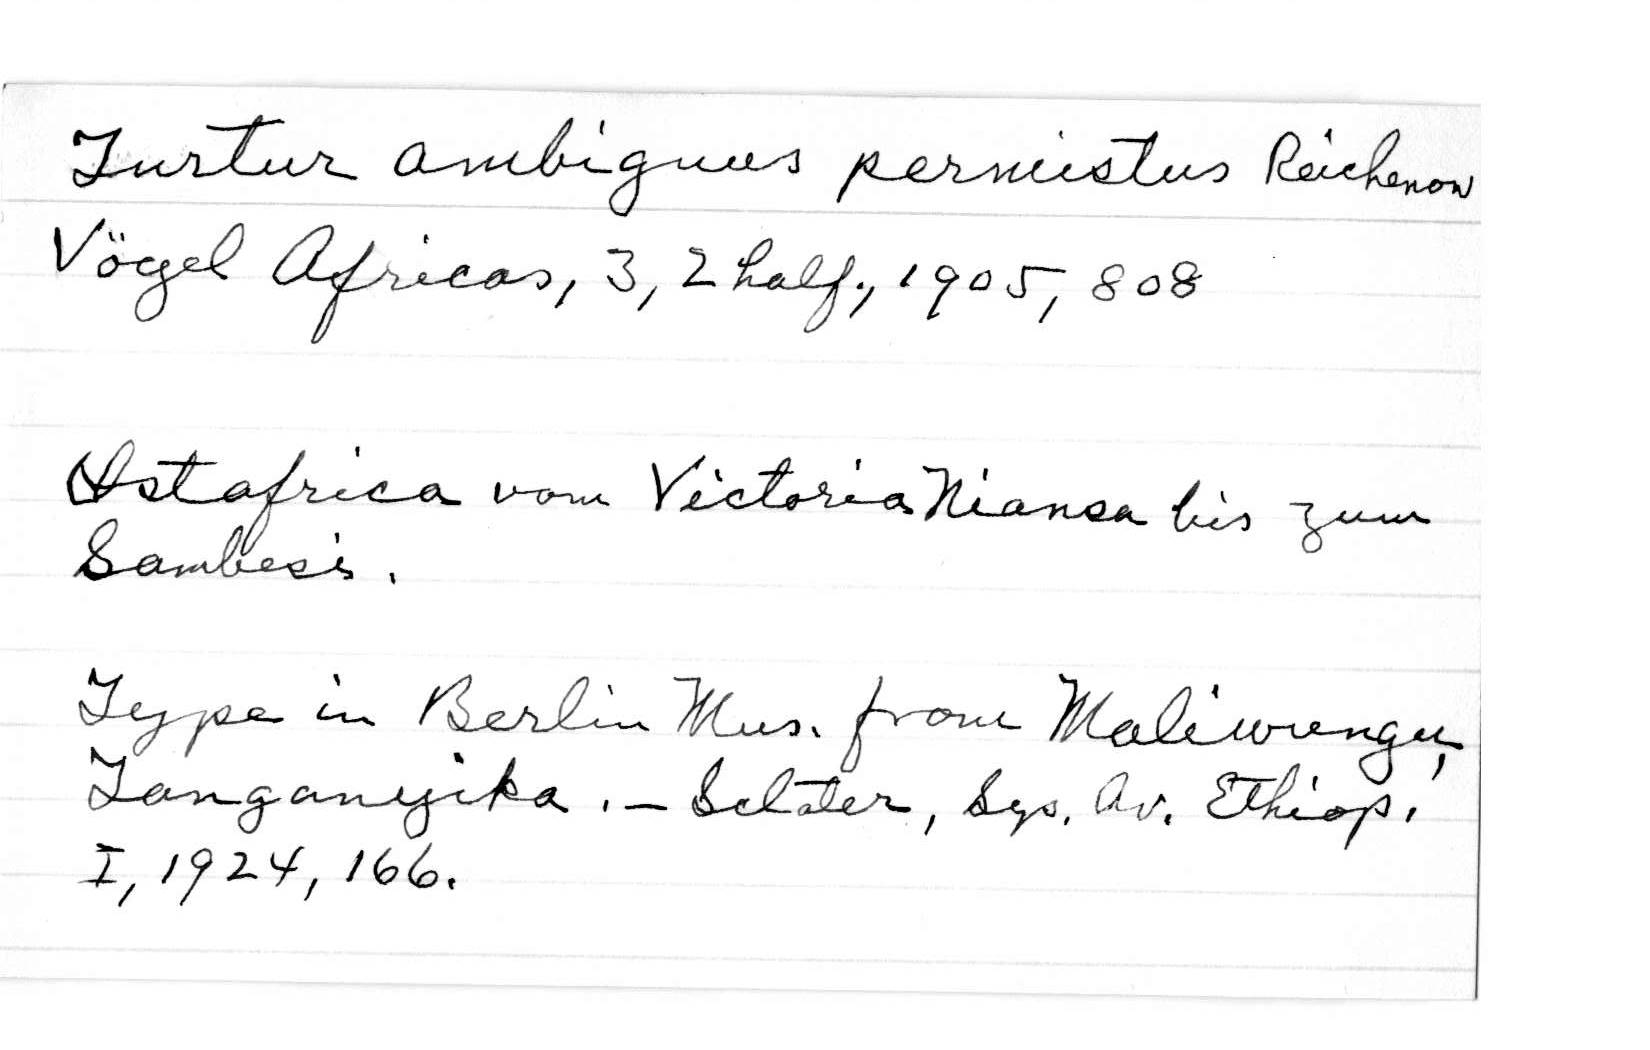 Turtur ambiguus permistus Reichenow
Vögel Africas, 3, 2 half., 1905, 808
Ostafrica vom Victoria Niansa bis zum
Sambesi.
Type in Berlin Mus. from Maliwungu,
Tanganyika. — Sclater, Sys. Av. Ethiop.
I, 1924, 166.